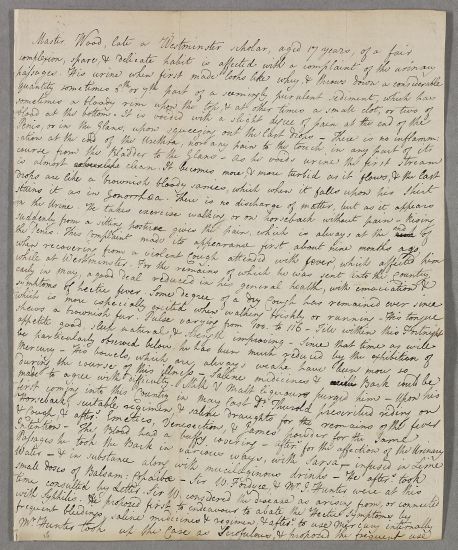 Master Wood, late a Westminster scholar, aged 17 years, of a fair
complexion, spare, & delicate habit is affected with a complaint of the urinary
passages. His urine when first made looks like whey & throws down a considerable
quantity sometimes 5th or 7th part of a seemingly purulent sediment, which has
sometimes a bloody rim upon the top, & at other times a small clot, or two of
blood at the bottom. It is voided with a slight degree of pain at the end of the
Penis, or in the Glans, upon squeezing out the last drops. There is no inflamm:
ations at the end of the Urethra, nor any pain to the touch in any part of its
course from the Bladder to the Glans. As he voids urine the first stream
is almost clear. It becomes more & more turbid as it flows, & the last
drops are like a brownish bloody sanies, which when it falls upon his Shirt
stains it as in Gonorrhœa. There is no discharge of matter, but as it appears
in the Urine. He takes exercise walking or on horseback without pain. Rising
suddenly from a sitting posture gives the pain, which is always at the end of
the Penis. This complaint made its appearance first about nine months ago
when recovering from a violent cough attended with fever, which affected him
while at Westminster. For the remains of which he was sent into the Country
early in may, a good deal reduced in his general health, with emaciation &
symptoms of hectic fever. Some degree of a dry Cough has remained ever since
which is more especially excited when walking briskly, or running. His tongue
shews a brownish fur. Pulse varying from 100. to 116. Till within this Fortnight
appetite good, sleep natural & strength improving. Since that time as will
be particularly observed below, he has been much reduced by the exhibition of
Mercury. His bowels, which are always weake have been more so
during the course of this illness. Saline medicines & Bark could be
made to agree with difficulty. Milk & Malt liquours purged him. Upon his
first coming into this Country in May last Dr Thurold prescribed riding on
Horseback, suitable regimen, & saline draughts for the remains of the fever
& Cough, & afterds Emetics, Venesection, & James' powder for the same
Intentions. The Blood had a buffy covering. afterds for the affection of the Urinary
Passages he took the Bark in various ways, with Sarsa. infused in Lime
Water. & in substance along with mucilaginous drinks. He afterds took
small doses of Balsam: Copaibæ. Sir W. Fordyce, & Mr J. Hunter were at this
time consulted by Letter. Sir W. considered the disease as arising from, or connected
with Syphilis. He proposed first to endeavour to abate the Hectic Symptoms by
frequent bleedings, saline medicines & regimen & afterds to use Mercury internally
Mr Hunter took up the Case as Scrofulous, & proposed the frequent use